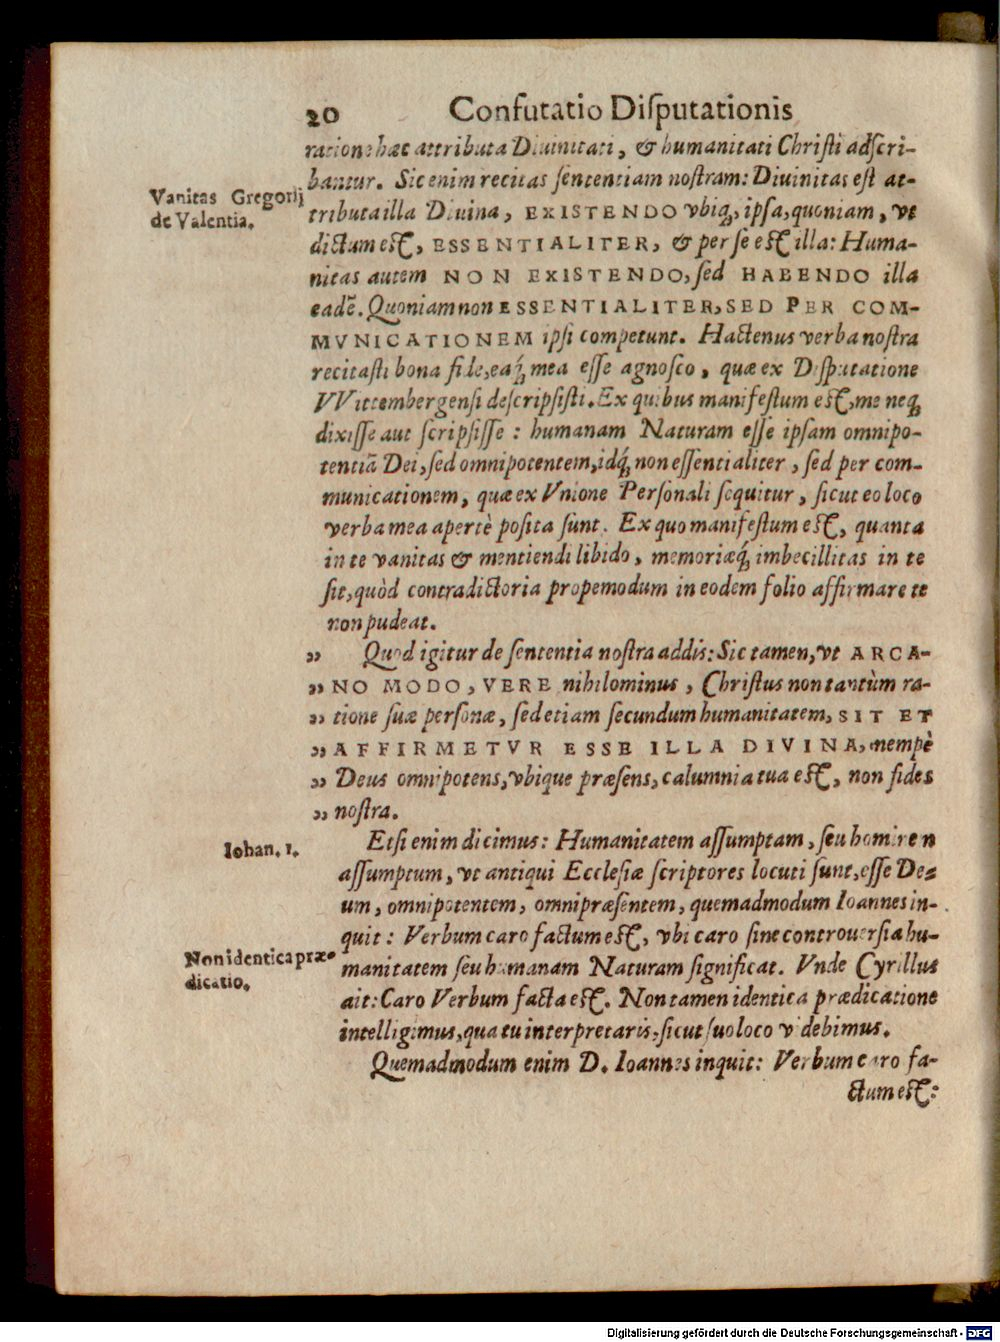 20 Confutatio Disputationis
ratione hæc attributa Diuinitati, & humanitati Christi adscri-
bantur. Sic enim recitas sententiam nostram: Diuinitas est at-
Vanitas Gregorij
de Valentia.
tributa illa Diuina, EXISTENDO vbiq́, ipsa, quoniam, vt
dictum est, ESSENTIALITER, & per se est illa: Huma-
nitas autem NON EXISTENDO, sed HABENDO illa
eadē. Quoniam non ESSENTIALITER, SED PER COM-
MVNICATIONEM ipsi competunt. Hactenus verba nostra
recitasti bona fide, eaq́ mea esse agnosco, quæ ex Disputatione
VVittembergensi descripsisti. Ex quibus manifestum est, me neq́
dixisse aut scripsisse: humanam Naturam esse ipsam omnipo-
tentiā Dei, sed omnipotentem, idq́ non essentialiter, sed per com-
municationem, quæ ex Vnione Personali sequitur, sicut eo loco
verba mea apertè posita sunt. Ex quo manifestum est, quanta
in te vanitas & mentiendi libido, memoriæq́ imbecillitas in te
sit, quòd contradictoria propemodum in eodem folio affirmare te
non pudeat.
„ Quod igitur de sententia nostra addis: Sic tamen, vt ARCA-
„ NO MODO, VERE nihilominus, Christus non tantùm ra-
„ tione suæ personæ, sed etiam secundum humanitatem, SIT ET
„ AFFIRMETVR ESSE ILLA DIVINA, nempè
„ Deus omnipotens, vbique præsens, calumnia tua est, non fides
„ nostra.
Etsi enim dicimus: Humanitatem assumptam, seu hominem
Iohan. 1.
assumptum, vt antiqui Ecclesiæ scriptores locuti sunt, esse De-
um, omnipotentem, omnipræsentem, quemadmodum Ioannes in-
quit: Verbum caro factum est, vbi caro sine controuersia hu-
Non identica præ-
dicatio.
manitatem seu humanam Naturam significat. Vnde Cyrillus
ait: Caro Verbum facta est. Non tamen identica prædicatione
intelligimus, qua tu interpretaris, sicut suo loco videbimus.
Quemadmodum enim D. Ioannes inquit: Verbum caro fa-
ctum est:
Digitalisierung gefördert durch die Deutsche Forschungsgemeinschaft - DFG